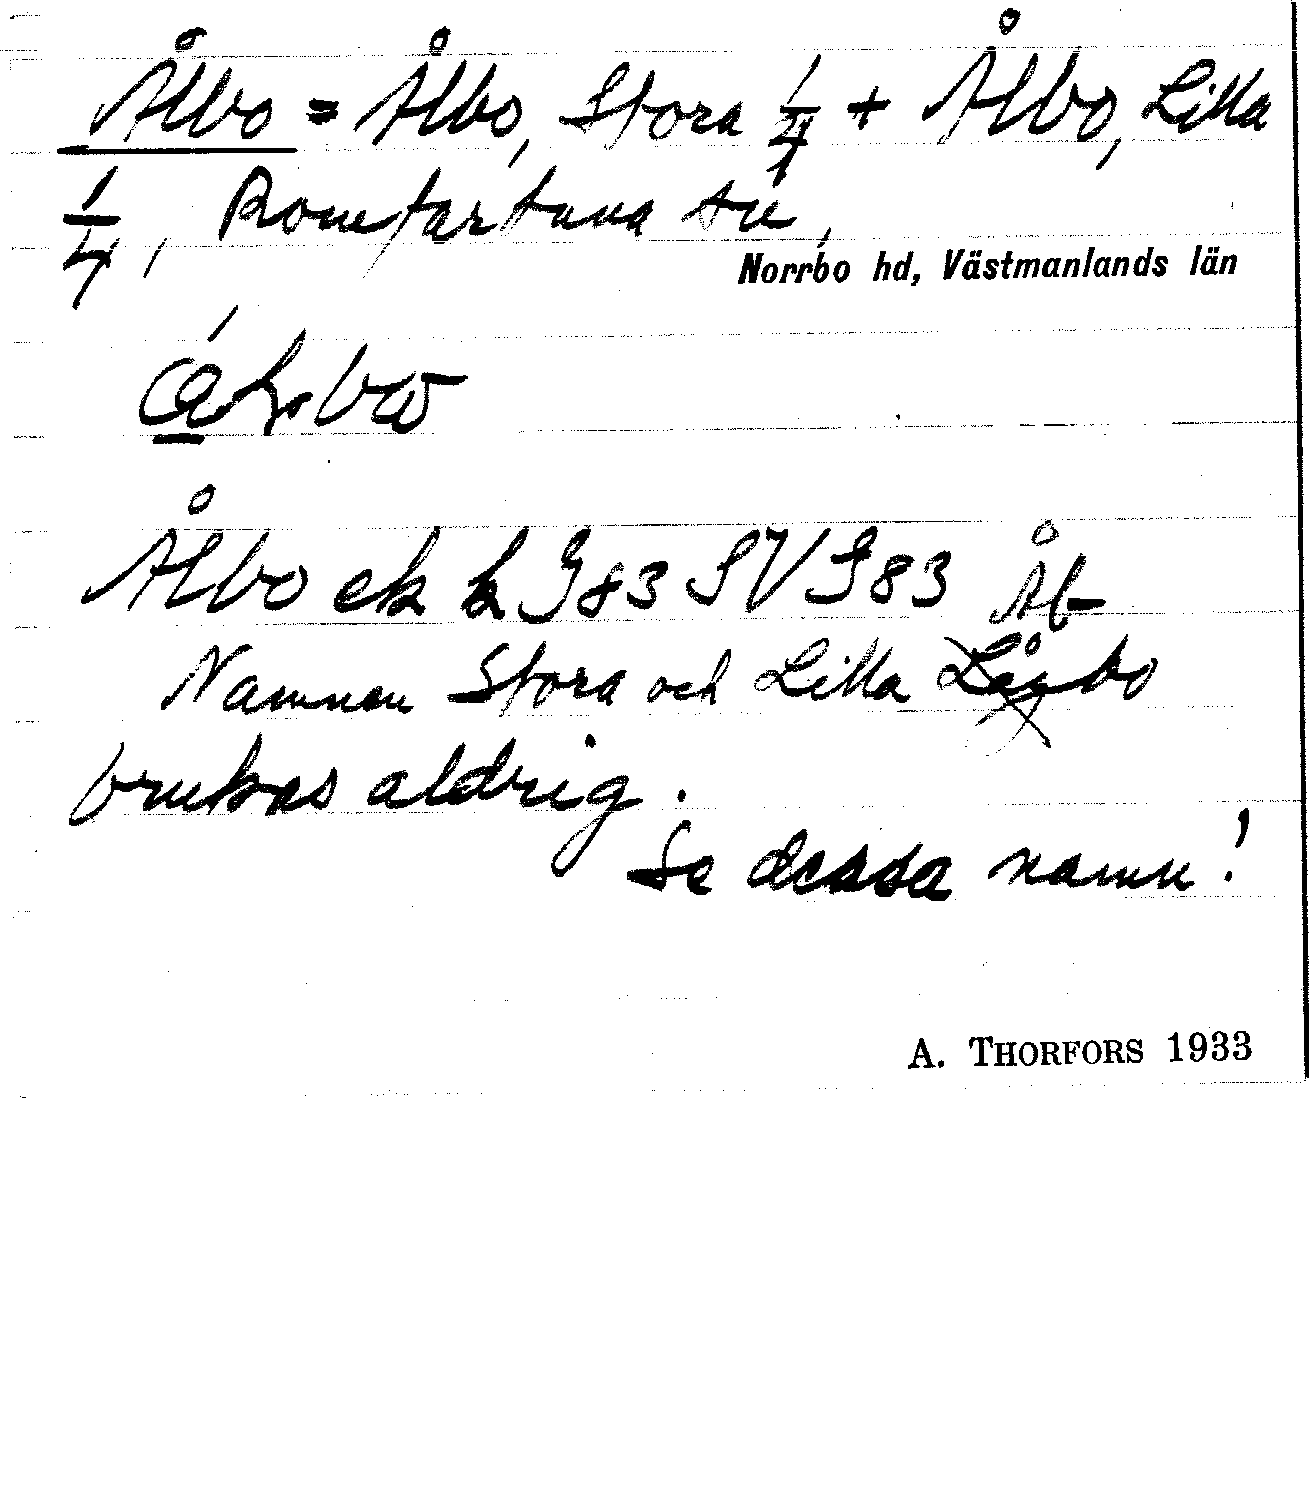 Ålbo = Ålbo, Stora 1/4 + Ålbo, Lilla
1/4, Romfartuna sn,
Norrbo hd, Västmanlands län
Ålbo ek k J 83 SV J 83 Ål-
Namnen Stora och Lilla bo
brukas aldrig.
Se dessa namn!
A. THORFORS 1933